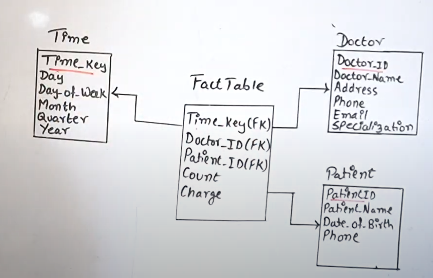 Time
Time_Key
Day
Day-of-Week
Month
Quarter
Year
Fact Table
Time_Key(FK)
Doctor_ID(FK)
Patient_ID(FK)
Count
Charge
Doctor
Doctor_ID
Doctor_Name
Address
Phone
Email
Specialization
Patient
PatientID
Patient_Name
Date_of_Birth
Phone